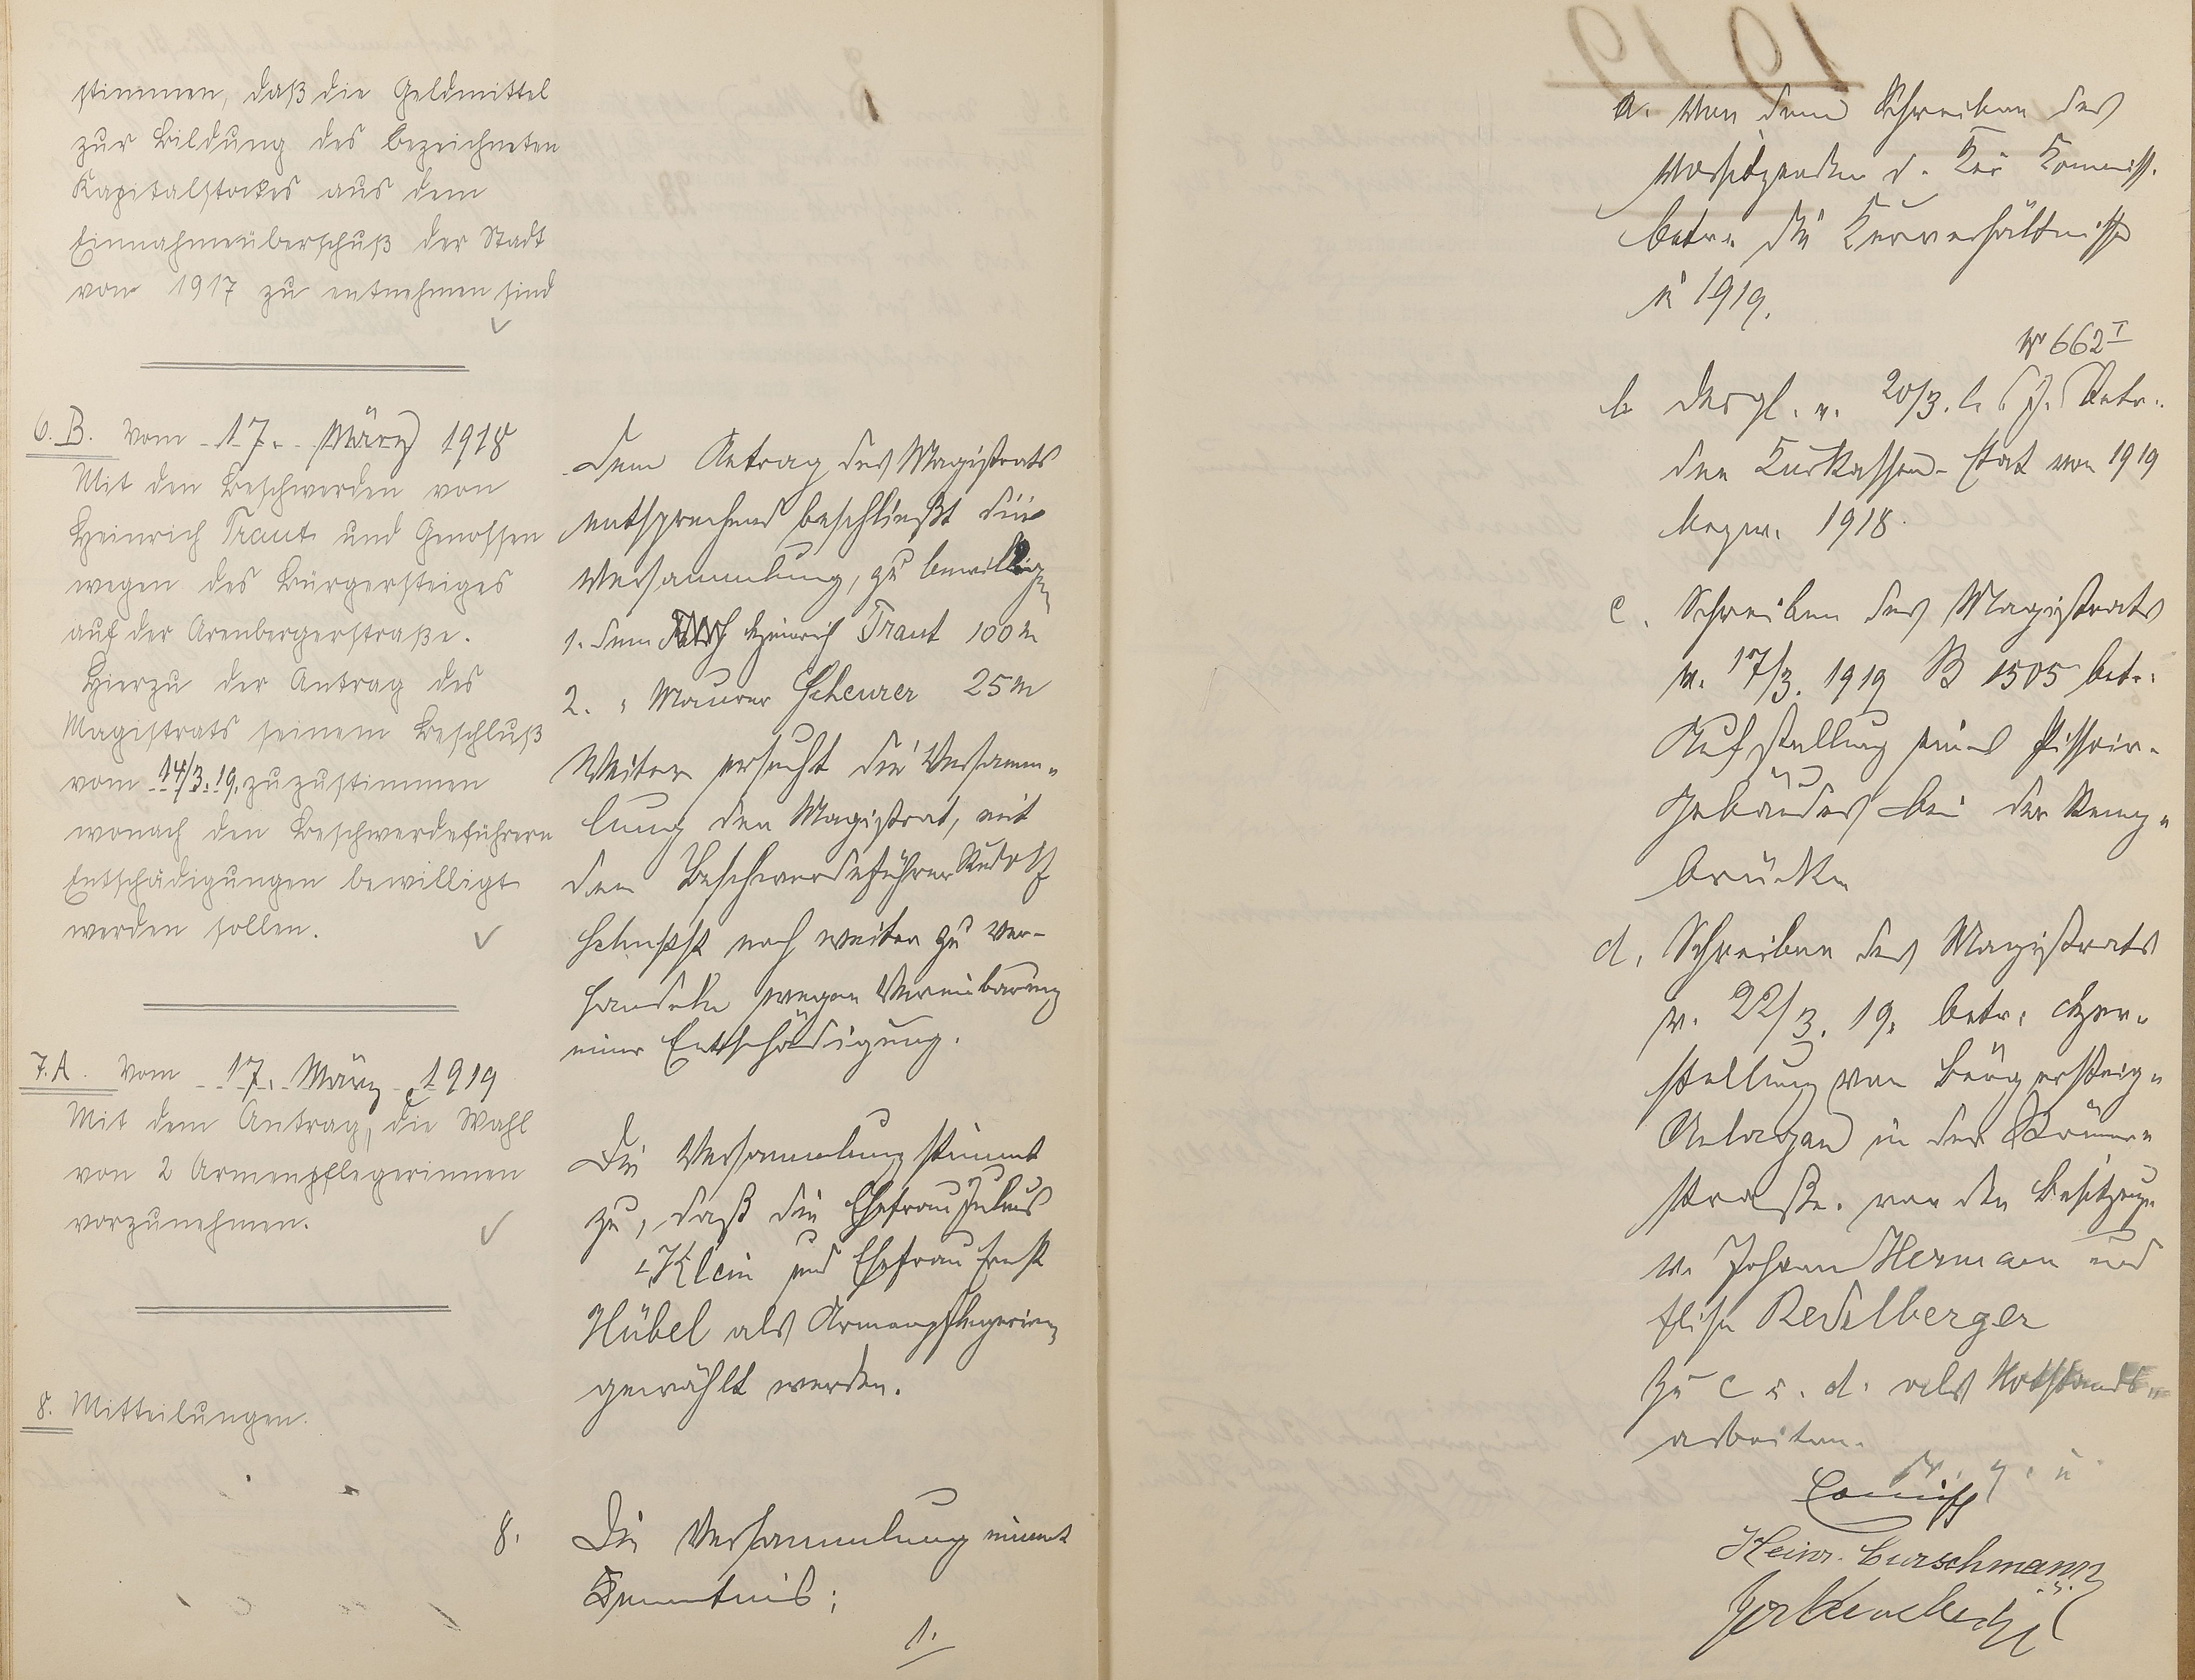 stimmen, daß die Geldmittel
zur Bildung des bezeichneten
Kapitalstockes aus dem
Einnahmeüberschuß der Stadt
von 1917 zu entnehmen sind
6. B. Vom 17. März 1918
Mit den Beschwerden von
Heinrich Traut und Genossen
wegen des Bürgersteiges
auf der Arenbergerstraße.
Hierzu der Antrag des
Magistrats seinem Beschluß
vom 14/3. 19. zuzustimmen
wonach den Beschwerdeführern
Entschädigungen bewilligt
werden sollen.
7. A. Vom 17. März 1919
Mit dem Antrag, die Wahl
von 2 Armenpflegerinnen
vorzunehmen.
8. Mitteilungen.
Dem Antrag des Magistrats
entsprechend beschließt die
Versammlung, zu bewilligen
1. dem Heinrich Traut 100 M
2. " Maurer Scheurer 25 M
Weiter ersucht die Versamm-
lung den Magistrat, mit
dem Beschwerdeführer Rudolf
noch weiter zu ver-
handeln wegen Vereinbarung
einer Entschädigung.
Die Versammlung stimmt
zu, daß die Ehefrau Julius
Klein und Ehefrau Ernst
Hübel als Armenpflegerinnen
gewählt werden.
8. Die Versammlung nimmt
Kenntnis:
1.
1919
a. Von dem Schreiben des
Vorsitzenden d. Kur Kommiss.
betr. die Kurverhältnisse
in 1919.
No 662 I
b. Desgl. v. 20/3. l. J. betr.
den Kurkassen-Etat von 1919
bezw. 1918.
c. Schreiben des Magistrats
v. 17/3. 1919 B 1505 betr.
Aufstellung eines Pissoir-
Gebäudes bei der
brücke
d. Schreiben des Magistrats
v. 22/3. 19. betr. Her-
stellung von Bürgersteig-
Anlagen in der Römer-
straße. von den Besitzungen
v. Johann Hermann und
Elise Redelberger
Zu c u. d. als Notstands-
arbeiten.
v. g. u.
Heinr. Curschmann